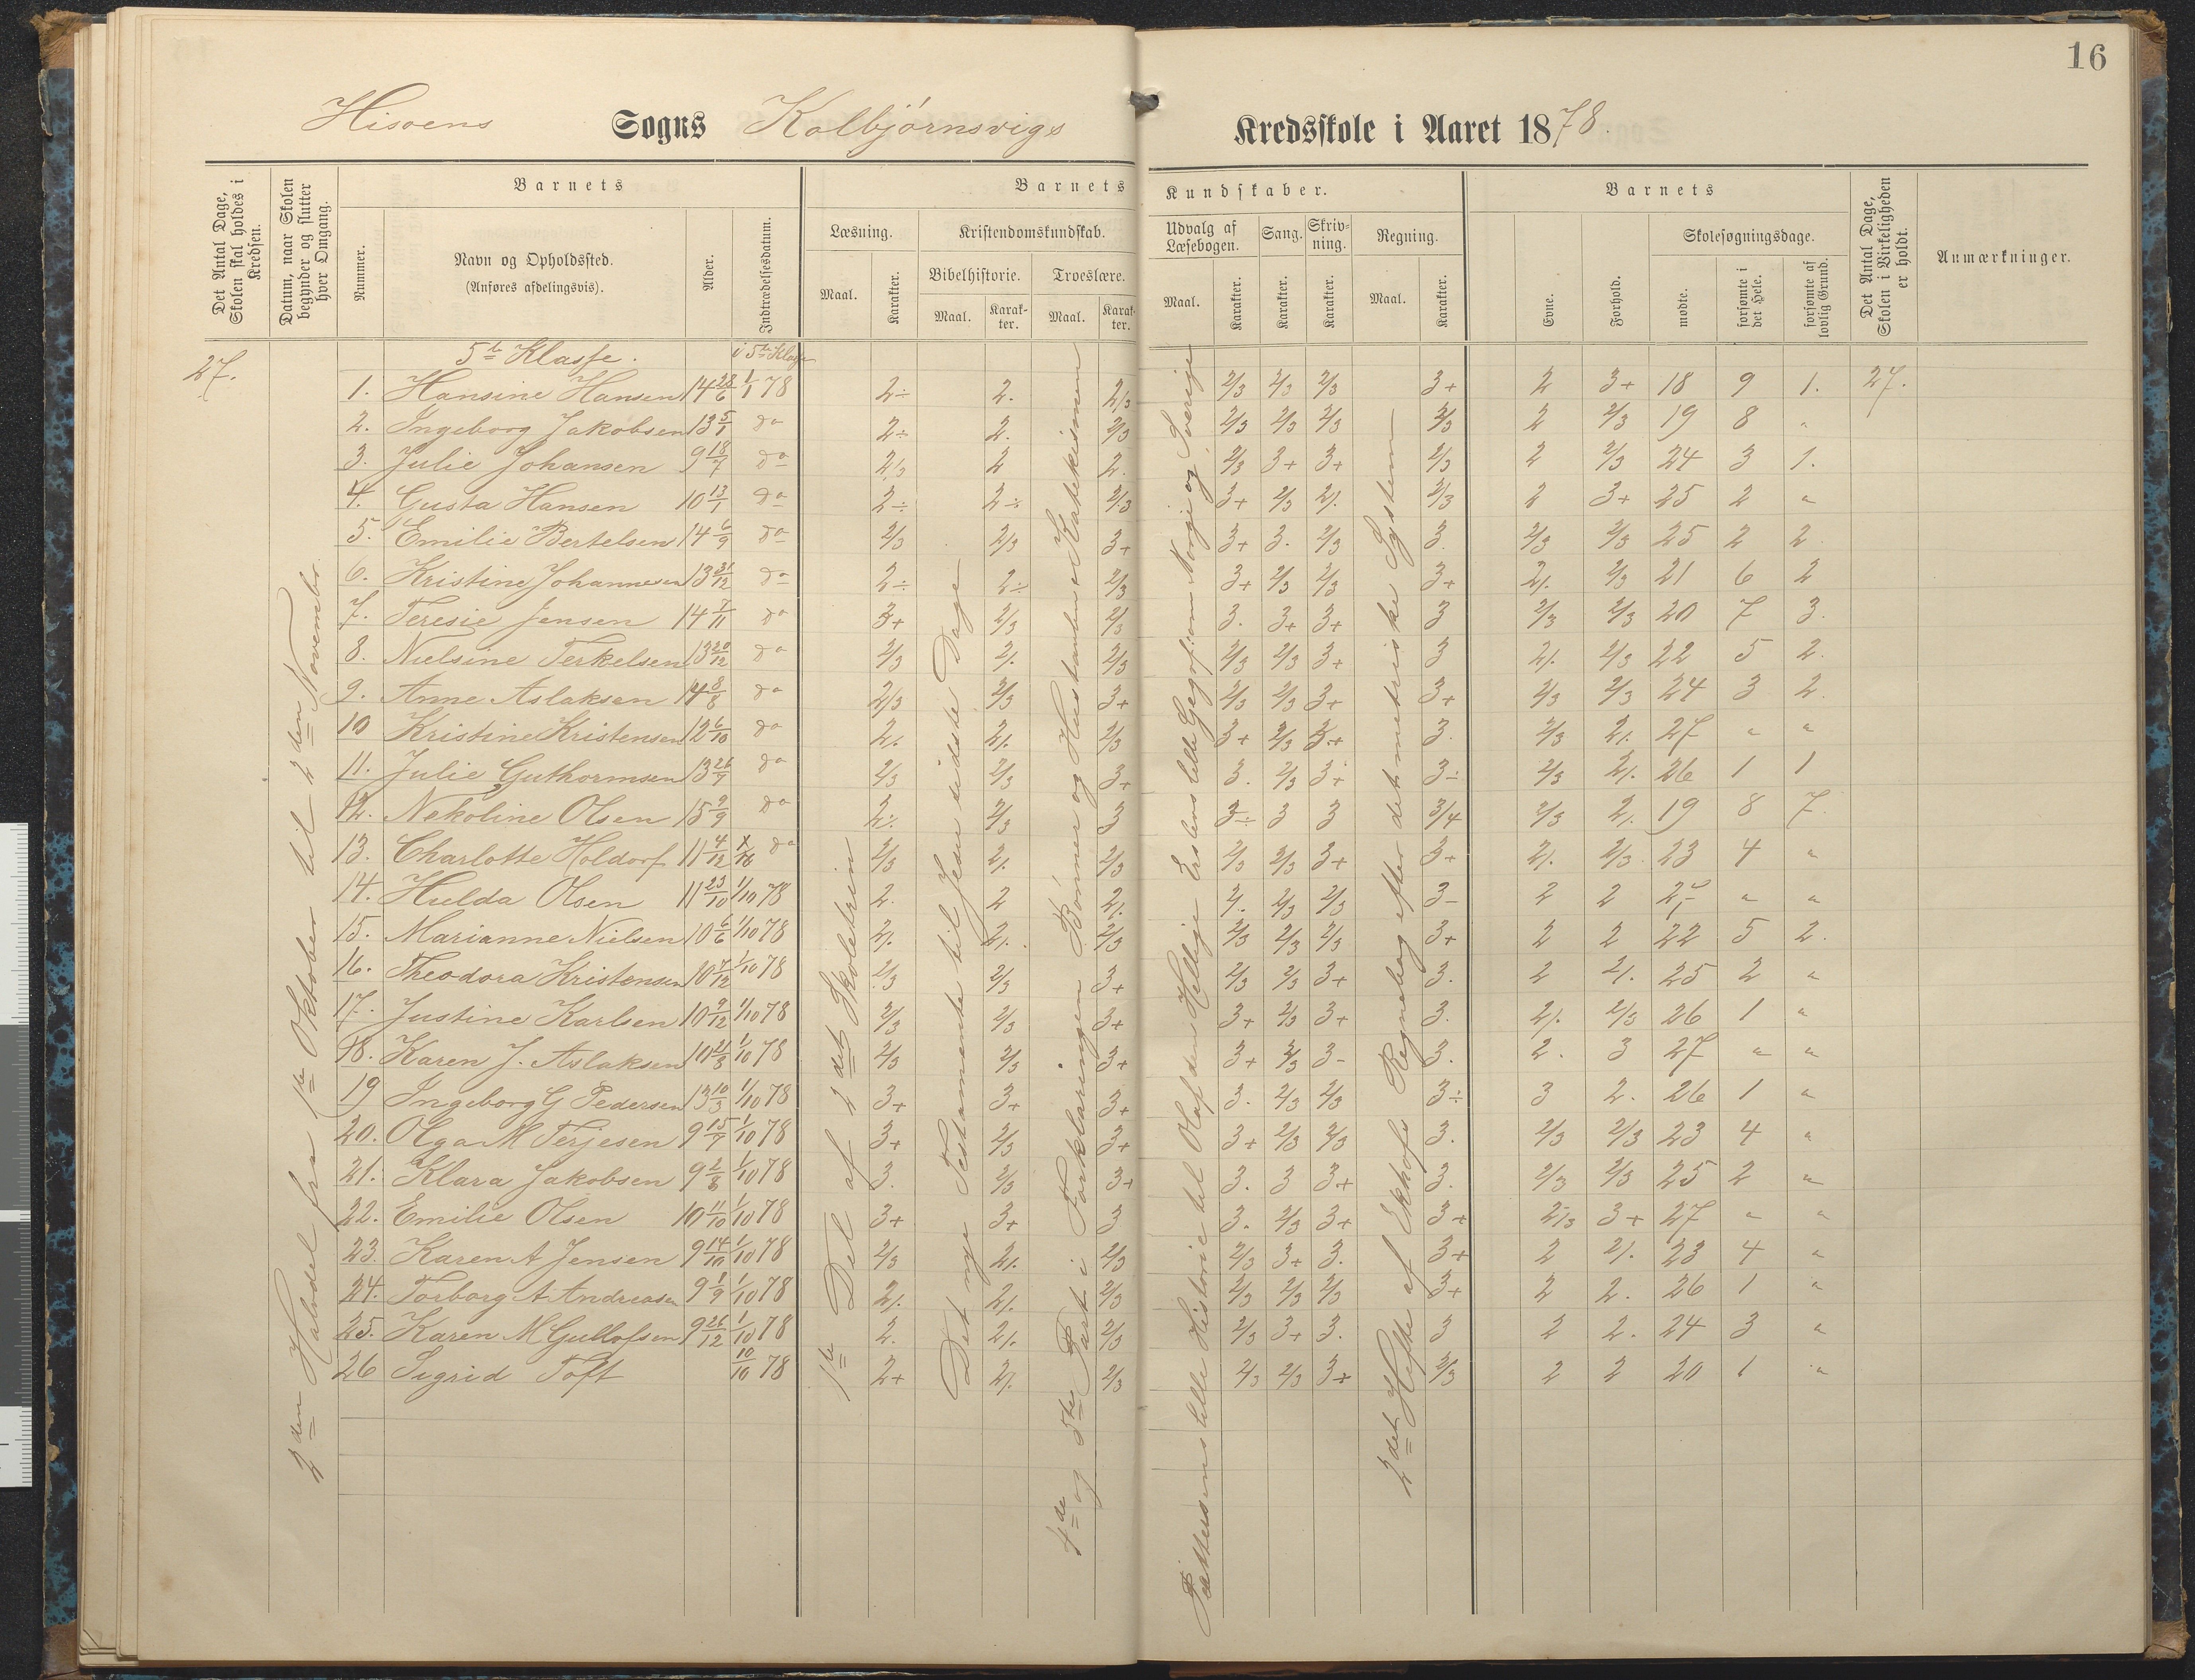 16
Hisoens Sogns Kolbjörnsvigs Kredsskole i Aaret 1878.
Det Antal Dage, Skolen skal holdes i Kredsen.
Datum, naar Skolen begynder og slutter hver Omgang.
Barnets
Nummer.
Navn og Opholdssted.
(Anføres afdelingsvis).
Alder.
Indtrædelsesdatum.
Barnets Kundskaber.
Læsning.
Maal.
Karakter.
Kristendomskundskab.
Bibelhistorie.
Maal.
Karakter.
Troeslære.
Maal.
Karakter.
Udvalg af Læsebogen.
Maal.
Karakter.
Sang.
Karakter.
Skrivning.
Karakter.
Regning.
Maal.
Karakter.
Barnets
Evne.
Forhold.
Skolesøgningsdage.
mødte.
forsømte i det Hele.
forsømte af lovlig Grund.
Det Antal Dage, Skolen i Virkeligheden er holdt.
Anmærkninger.
27.
2den Halvdel fra 1ste Oktober til 2den Novembr.
5te Klasse. i 5te Klasse
1. Hansine Hansen 14 28/6 1/1 78 2÷ 2. 2/3 2/3 2/3 2/3 3+ 2 3+ 18 9 1. 27.
2. Ingeborg Jakobsen 13 5/1 do 2÷ 2. 2/3 2/3 2/3 2/3 2/3 2 2/3 19 8 "
3. Julie Johansen 9 18/7 do 2/3 2 2. 2/3 3+ 3+ 2/3 2 2/3 24 3 1.
4. Gusta Hansen 10 13/1 do 2÷ 2÷ 2/3 3+ 2/3 2/. 2/3 2 3+ 25 2 "
5. Emilie Bertelsen 14 6/9 do 2/3 2/3 3+ 3+ 3. 2/3 3. 2/3 2/3 25 2 2
6. Kristine Johannesen 13 31/12 do 2÷ 2÷ 2/3 3+ 2/3 2/3 3+ 2/. 2/3 21 6 2
7. Teresie Jensen 14 7/11 do 3+ 2/3 2/3 3. 3+ 3+ 3 2/3 2/3 20 7 3.
8. Nielsine Terkelsen 13 20/12 do 2/3 2/. 2/3 2/3 2/3 3+ 3 2/. 2/3 22 5 2.
9. Anne Aslaksen 14 8/8 do 2/3 2/3 3+ 2/3 2/3 3+ 3+ 2/3 2/3 24 3 2.
10 Kristine Kristensen 12 6/10 do 2/. 2/. 2/3 3+ 2/3 3+ 3. 2/3 2/. 27 " "
11. Julie Guthormsen 13 26/7 do 2/3 2/3 3+ 3. 2/3 3+ 3÷ 2/3 2/. 26 1 1
12. Nekoline Olsen 15 9/9 do 2/. 2/3 3 3÷ 3 3 3/4 2/3 2/. 19 8 7.
13. Charlotte Holdorf 11 4/12 do 2/3 2/. 2/3 2/3 2/3 3+ 3+ 2/. 2/3 23 4 "
14. Hulda Olsen 11 23/10 1/10 78 2. 2 2/. 2/. 2/3 2/3 3- 2 2 " "
15. Marianne Nielsen 10 6/6 1/10 78 2/. 2/. 2/3 2/3 2/3 2/3 3+ 2 2 22 5 2.
16. Theodora Kristensen 10 7/12 1/10 78 2/3 2/3 3+ 2/3 2/3 3+ 3. 2 2/. 25 2 "
17. Justine Karlsen 10 9/12 1/10 78 2/3 2/3 3+ 3+ 2/3 3+ 3. 2/. 2/3 26 1 "
18. Karen J. Aslaksen 10 21/3 1/10 78 2/3 2/3 3+ 3+ 2/3 3- 3. 2. 3 27 " "
19 Ingeborg G Pedersen 13 10/3 1/10 78 3+ 3+ 3+ 3. 2/3 2/3 3÷ 3 2. 26 1 "
20. Olga M Terjesen 9 15/7 1/10 78 3+ 2/3 3+ 3+ 2/3 2/3 3. 2/3 2/3 23 4 "
21. Klara Jakobsen 9 2/8 1/10 78 3. 2/3 3+ 3. 3 3+ 3. 2/3 2/3 25 2 "
22. Emilie Olsen 10 11/10 1/10 78 3+ 3+ 3 3. 2/3 3+ 3+ 2/3 3+ 27 " "
23. Karen A Jensen 9 14/10 1/10 78 2/3 2/. 2/3 2/3 3+ 3. 3+ 2 2/. 23 4 "
24. Torborg A Andreasen 9 1/9 1/10 78 2/. 2/. 2/3 2/3 2/3 2/3 3+ 2 2. 26 1 "
25. Karen M Gullofsen 9 26/12 1/10 78 2. 2/. 2/3 2/3 3+ 3. 3 2 2. 24 3 "
26 Sigrid Toft 10/10 78 2+ 2/. 2/3 2/3 2/3 3+ 2/3 2 2 20 1 "
1ste Del af 2det Skoletrin
Det nye Testamente til Jesu sidste Dage
4de og 5te Part i Forklaringen Bønner og Hustavlen i Katekismen
lille Historie til Olaf den Hellige Erslevs lille Geografi om Norge og Sverige
2det Hefte af Ekhofs Regnebog efter det metriske System